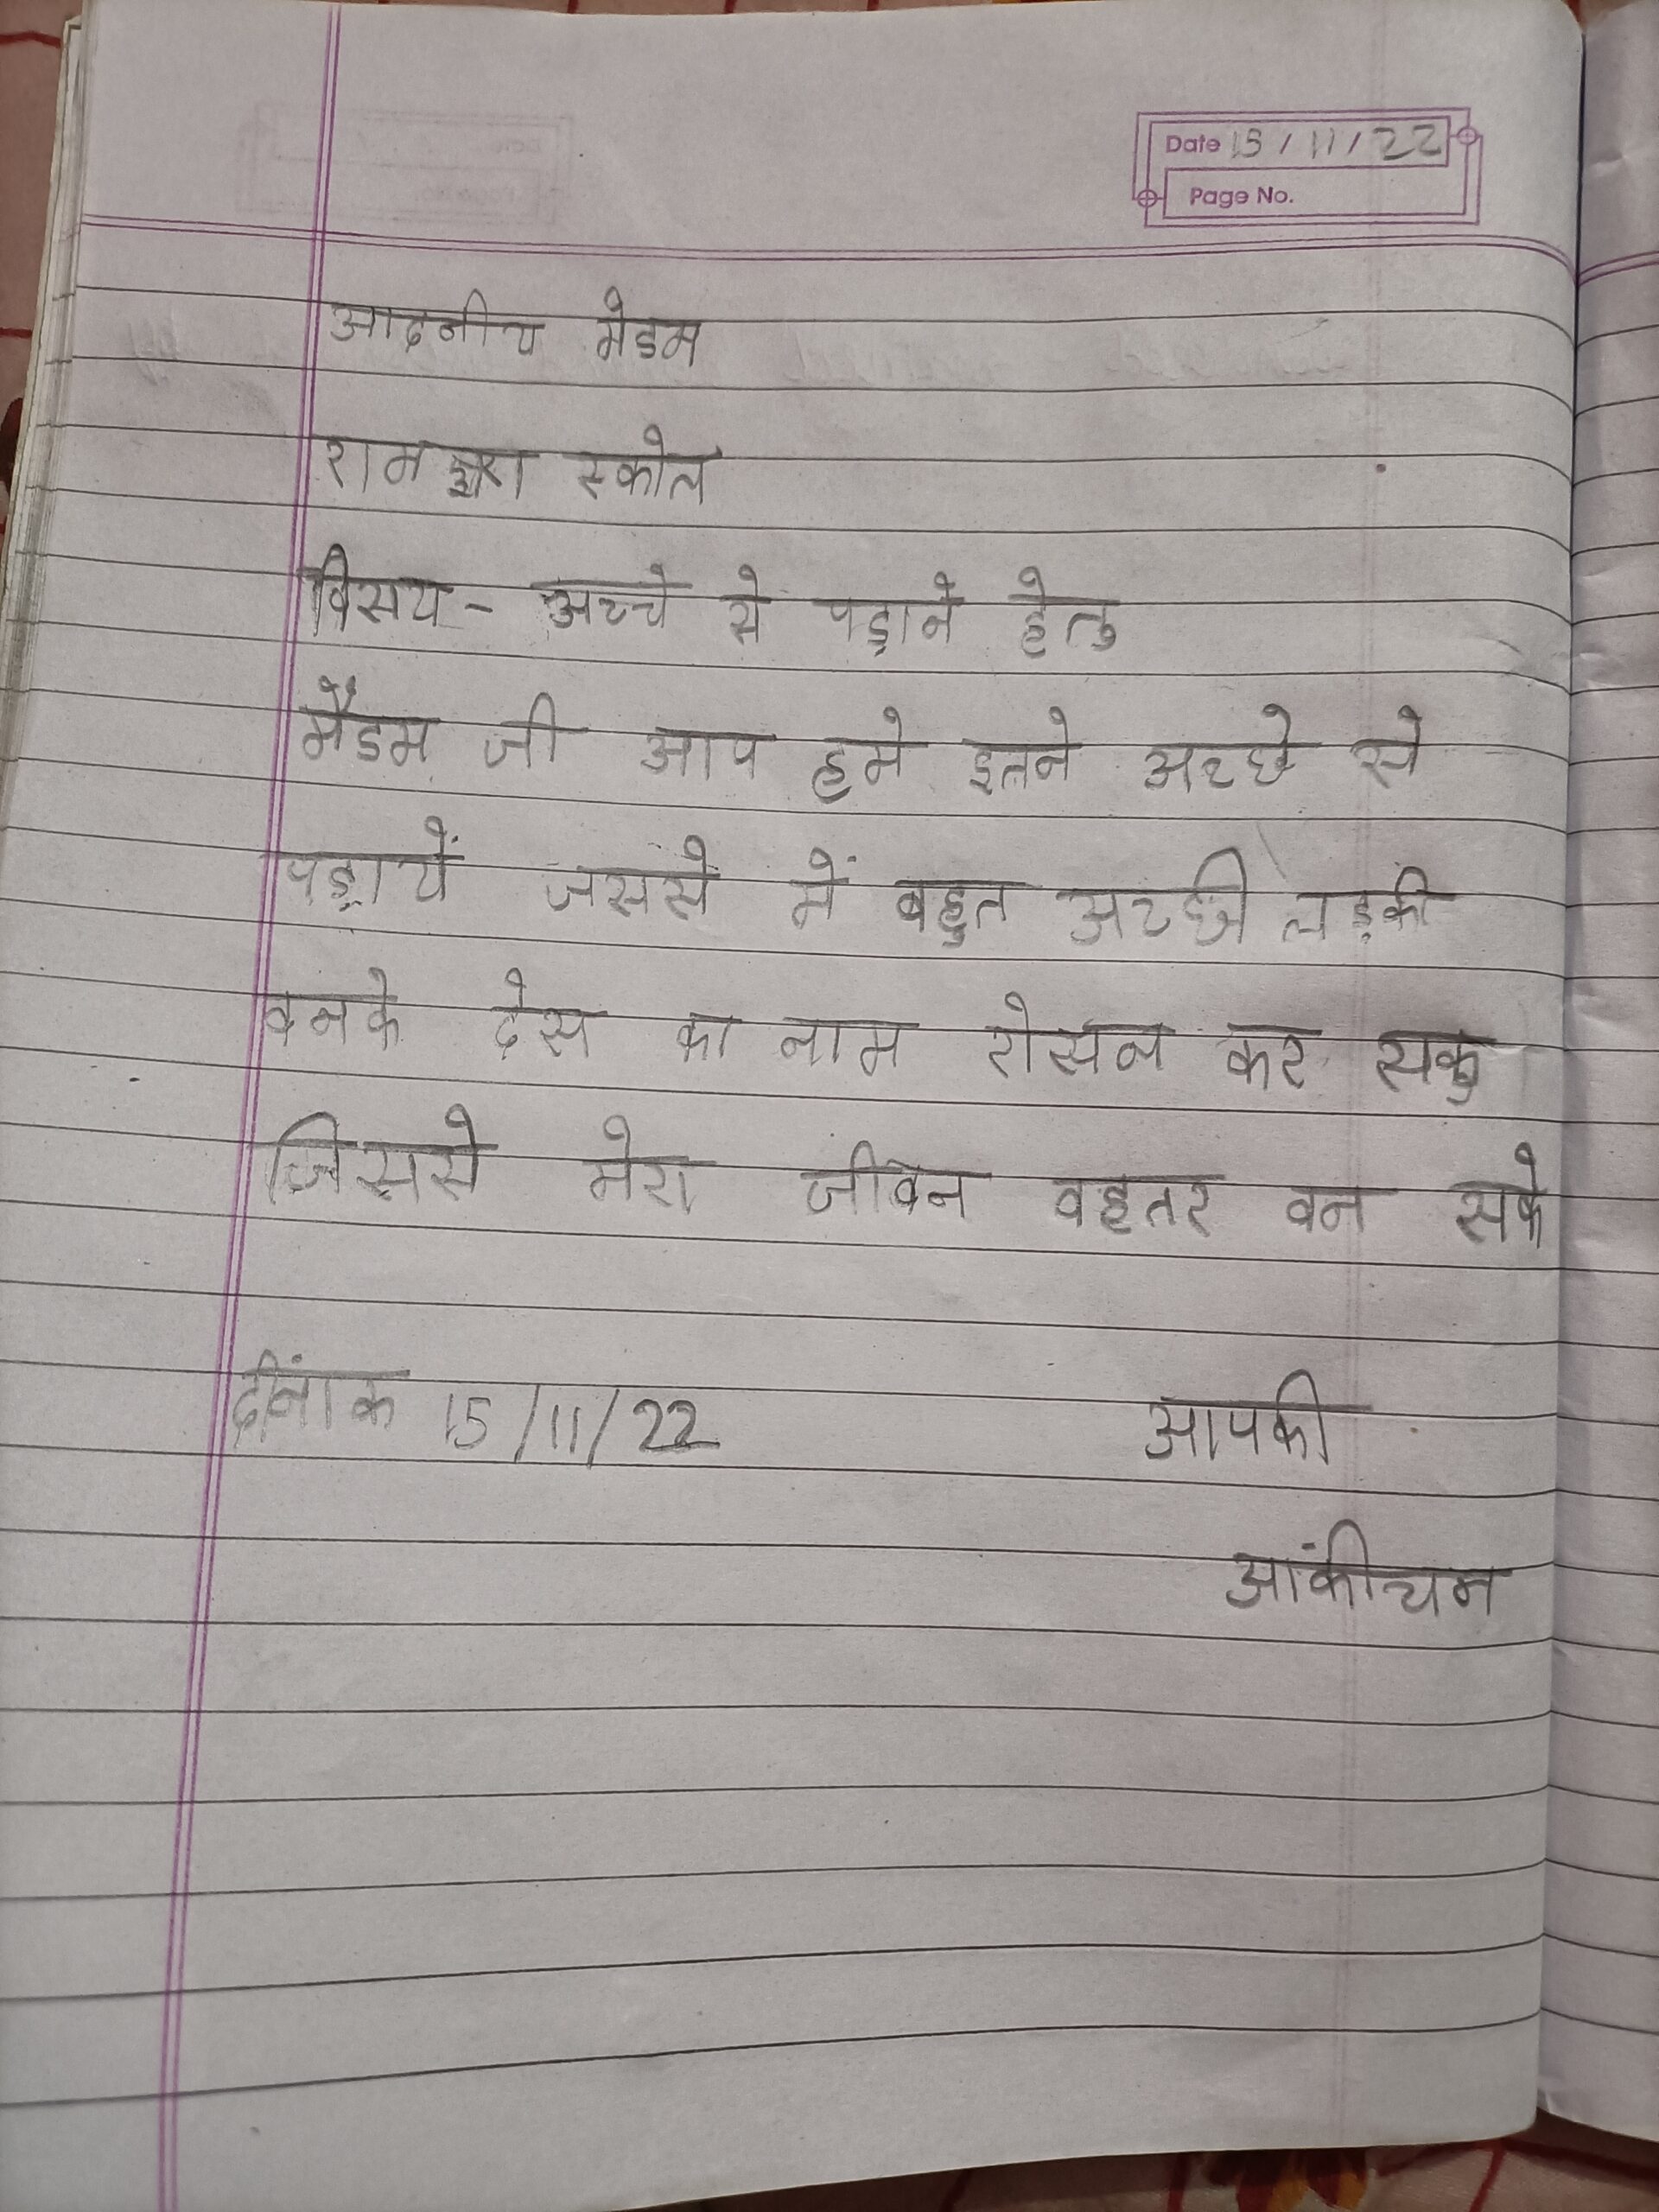 Date 15/11/22
Page No.
आदनीय मेडम
राम स्कोल
विसय - अच्चे से पड़ाने हेतु
मैडम जी आप हमे इतने अच्छे से
पड़ायें जससे में बहुत अच्छी लड़की
वनके देस का नाम रोसन कर सकु
जिससे मेरा जीवन वहतर वन सके
दीनांक 15/11/22
आपकी
आंकीचन